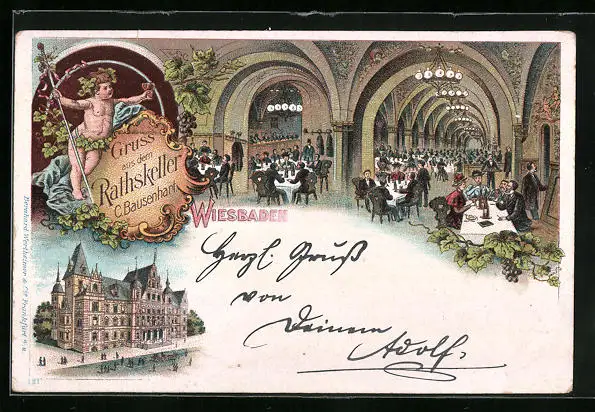 Gruss
aus dem
Rathskeller
C. Bausenhart.
WIESBADEN
Herzl. Gruß
von
Deinem
Adolf.
Bernhard Wertheimer & Cie Frankfurt a. M.
121